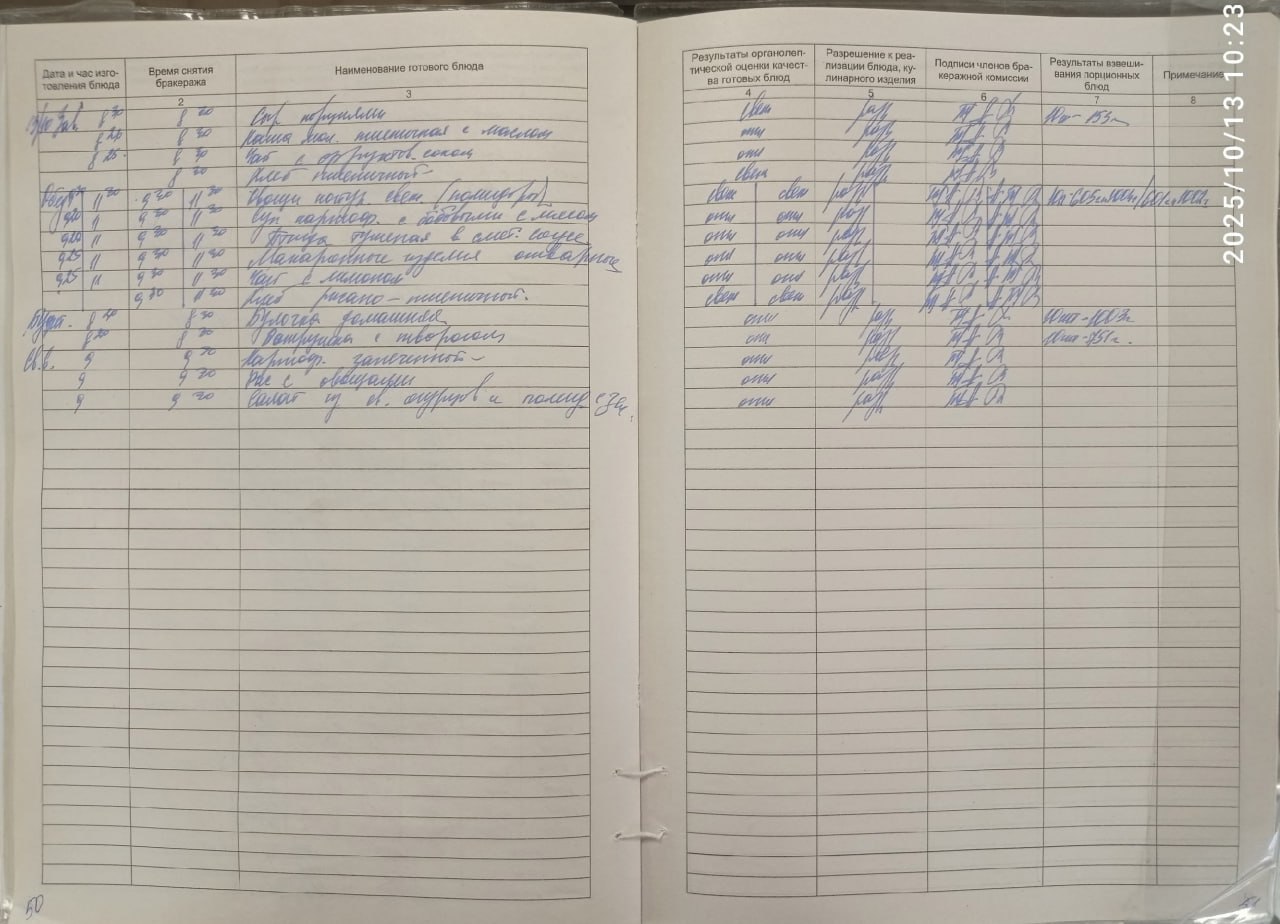 2025/10/13 10:23
Дата и час изго-
товления блюда
Время снятия
бракеража
Наименование готового блюда
Результаты органолеп-
тической оценки качест-
ва готовых блюд
Разрешение к реа-
лизации блюда, ку-
линарного изделия
Подписи членов бра-
керажной комиссии
Результаты взвеши-
вания порционных
блюд
Примечание
2 3 4 5 6 7 8
13/10 Зав. 8 20 Сыр порциями свеж разр 10шт - 153г
8 20 8 30 Каша мол. пшеничная с маслом отл разр
8 25 8 30 Чай с фруктов. соком отл разр
8 30 Хлеб пшеничный свеж разр
Обед 11 20 9 30 11 30 Овощи натур. свеж (помидоры) свеж свеж разр
9 20 11 9 30 11 30 Суп картоф. с бобовыми с мясом отл отл разр
9 20 11 9 30 11 30 Птица тушеная в смет. соусе отл отл разр
9 25 11 9 30 11 30 Макаронные изделия отварные отл отл разр
9 25 11 9 30 11 30 Чай с лимоном отл отл разр
9 30 11 30 Хлеб ржано-пшеничный. свеж свеж разр
8 20 8 30 Булочка домашняя отл разр
8 20 8 30 Ватрушка с творогом отл разр
9 9 20 Картоф. запеченный отл разр
9 9 20 Рис с овощами отл разр
9 9 20 Салат из св. огурцов и помид. отл разр
50
51